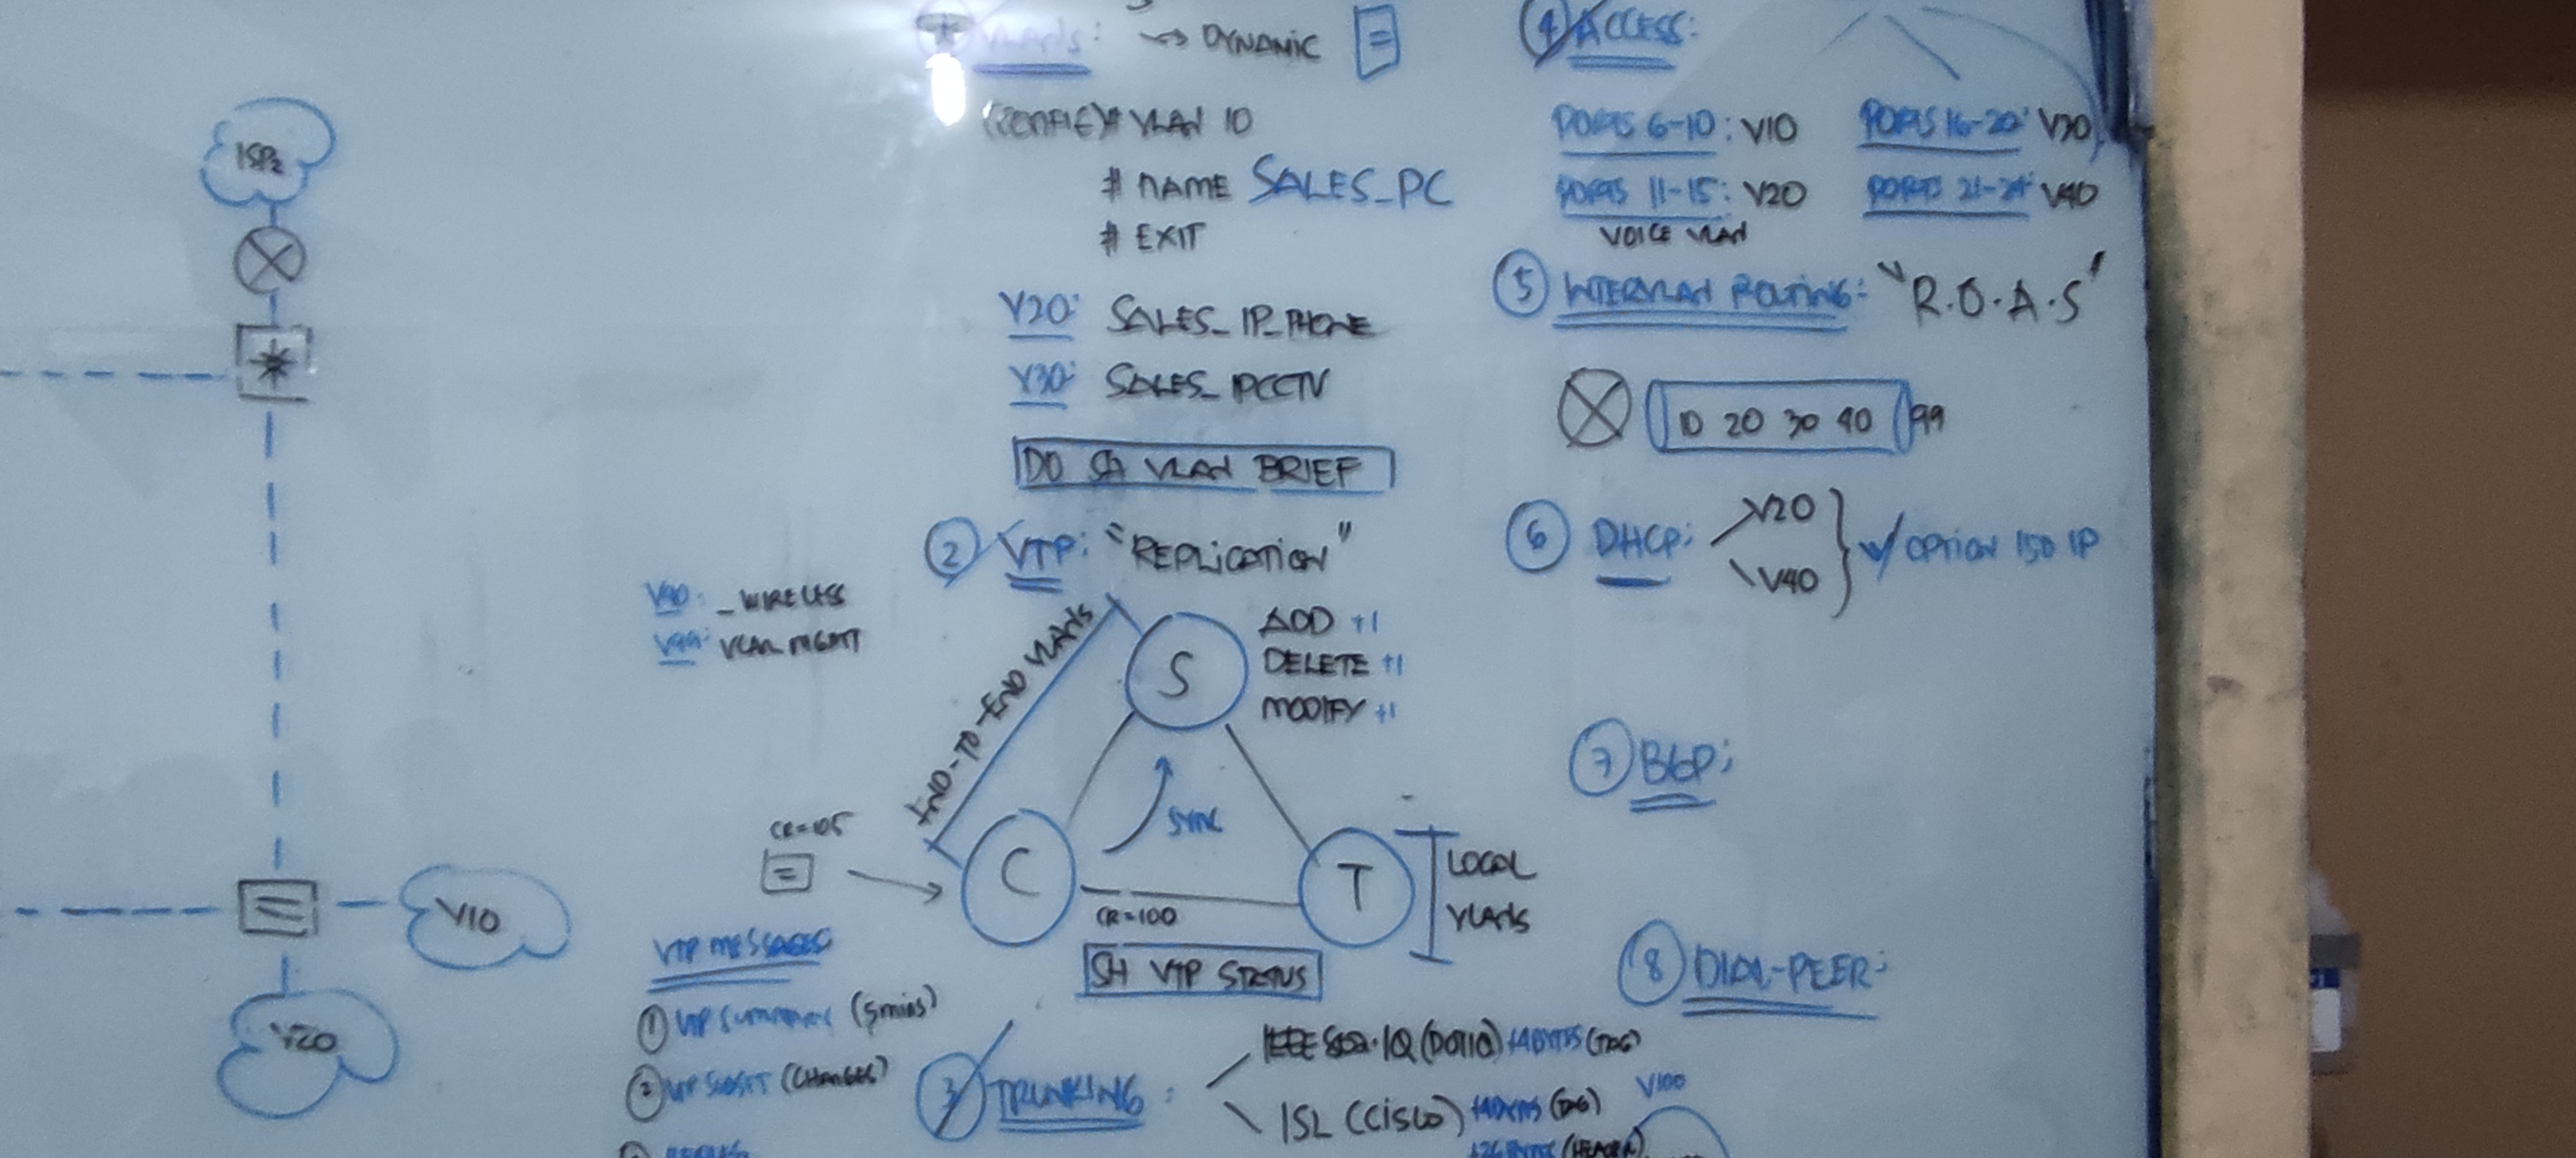 ISP2
V10
V20
VLANs: → DYNAMIC
(CONFIG)# VLAN 10
# NAME SALES_PC
# EXIT
V20: SALES_IP_PHONE
V30: SALES_IPCCTV
DO SH VLAN BRIEF
V40: _WIRELESS
V99: VLAN MGMT
2 VTP: "REPLICATION"
END-TO-END VLANs
S
ADD +1
DELETE +1
MODIFY +1
SYNC
CR=105
C
CR=100
T
LOCAL
VLANs
SH VTP STATUS
VTP MESSAGES
1 VTP SUMMARY (5mins)
2 VTP SUBSET (CHANGES)
3 TRUNKING:
IEEE 802.1Q (DOT1Q) +4BYTES (TAG)
ISL (CISCO) (TAG)
+26 BYTES (HEADER)
V100
4 ACCESS:
PORTS 6-10: V10
PORTS 16-20: V30
PORTS 11-15: V20
PORTS 21-24: V40
VOICE VLAN
5 INTERVLAN ROUTING: "R.O.A.S"
10 20 30 40 99
6 DHCP: V20
V40
w/ OPTION 150 IP
7 BGP:
8 DIAL-PEER: